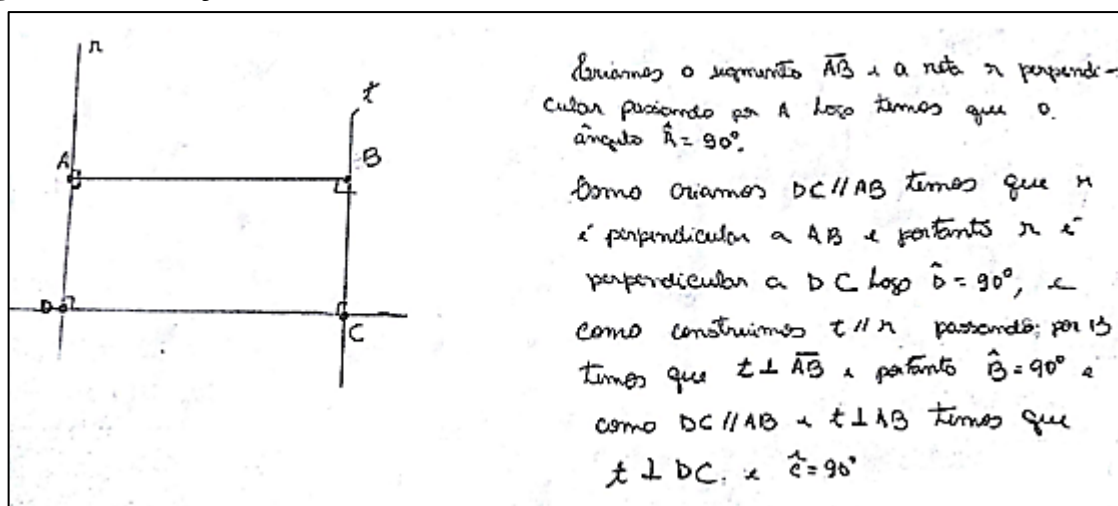 r
t
A
B
D
C
Criamos o segmento AB e a reta r perpendi-
cular passando por A logo temos que o
ângulo Â = 90°.
Como criamos DC // AB temos que r
é perpendicular a AB e portanto r é
perpendicular a DC logo D̂ = 90°, e
como construimos t // r passando por B
temos que t ⊥ AB e portanto B̂ = 90° e
como DC // AB e t ⊥ AB temos que
t ⊥ DC. e ĉ = 90°